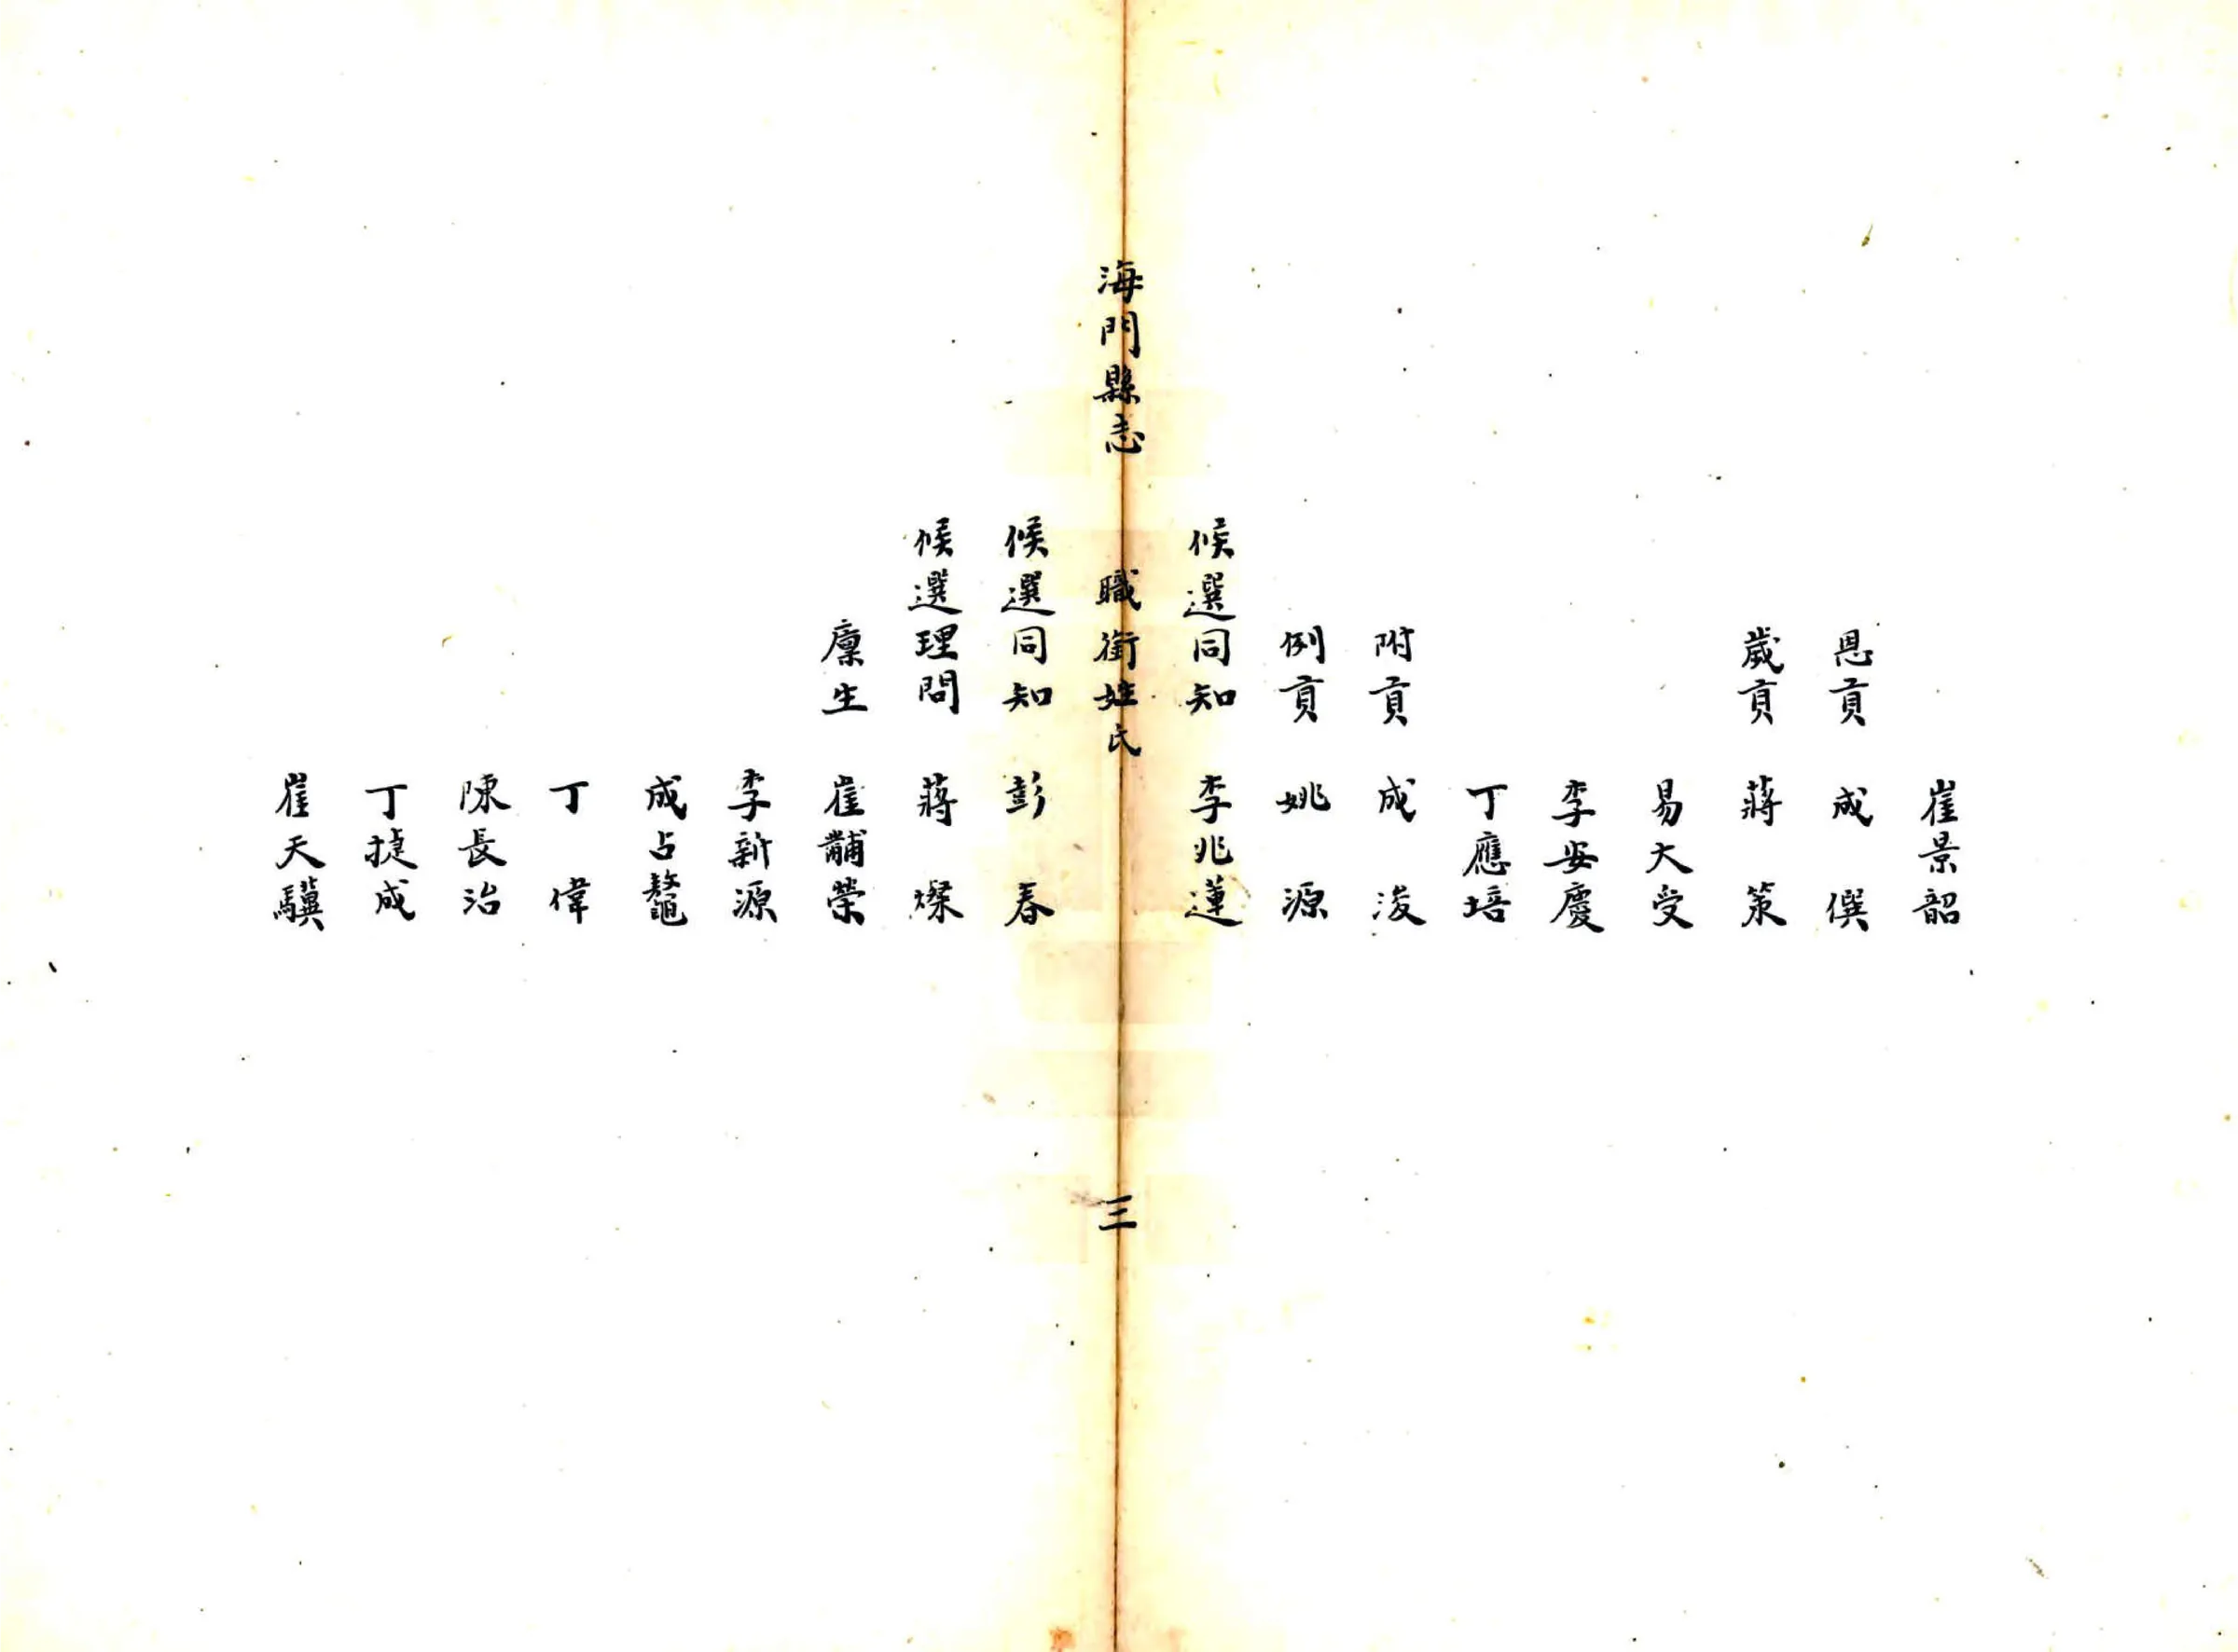 崔景韶
恩貢 成僎
歲貢 蔣策
易大受
李安慶
丁應培
附貢 成浚
例貢 姚源
候選同知 李兆蓮
海門縣志 職銜姓氏 三
候選同知 彭春
候選理問 蔣燦
廩生 崔黼榮
李新源
成占鼇
丁偉
陳長治
丁捷成
崔天驥